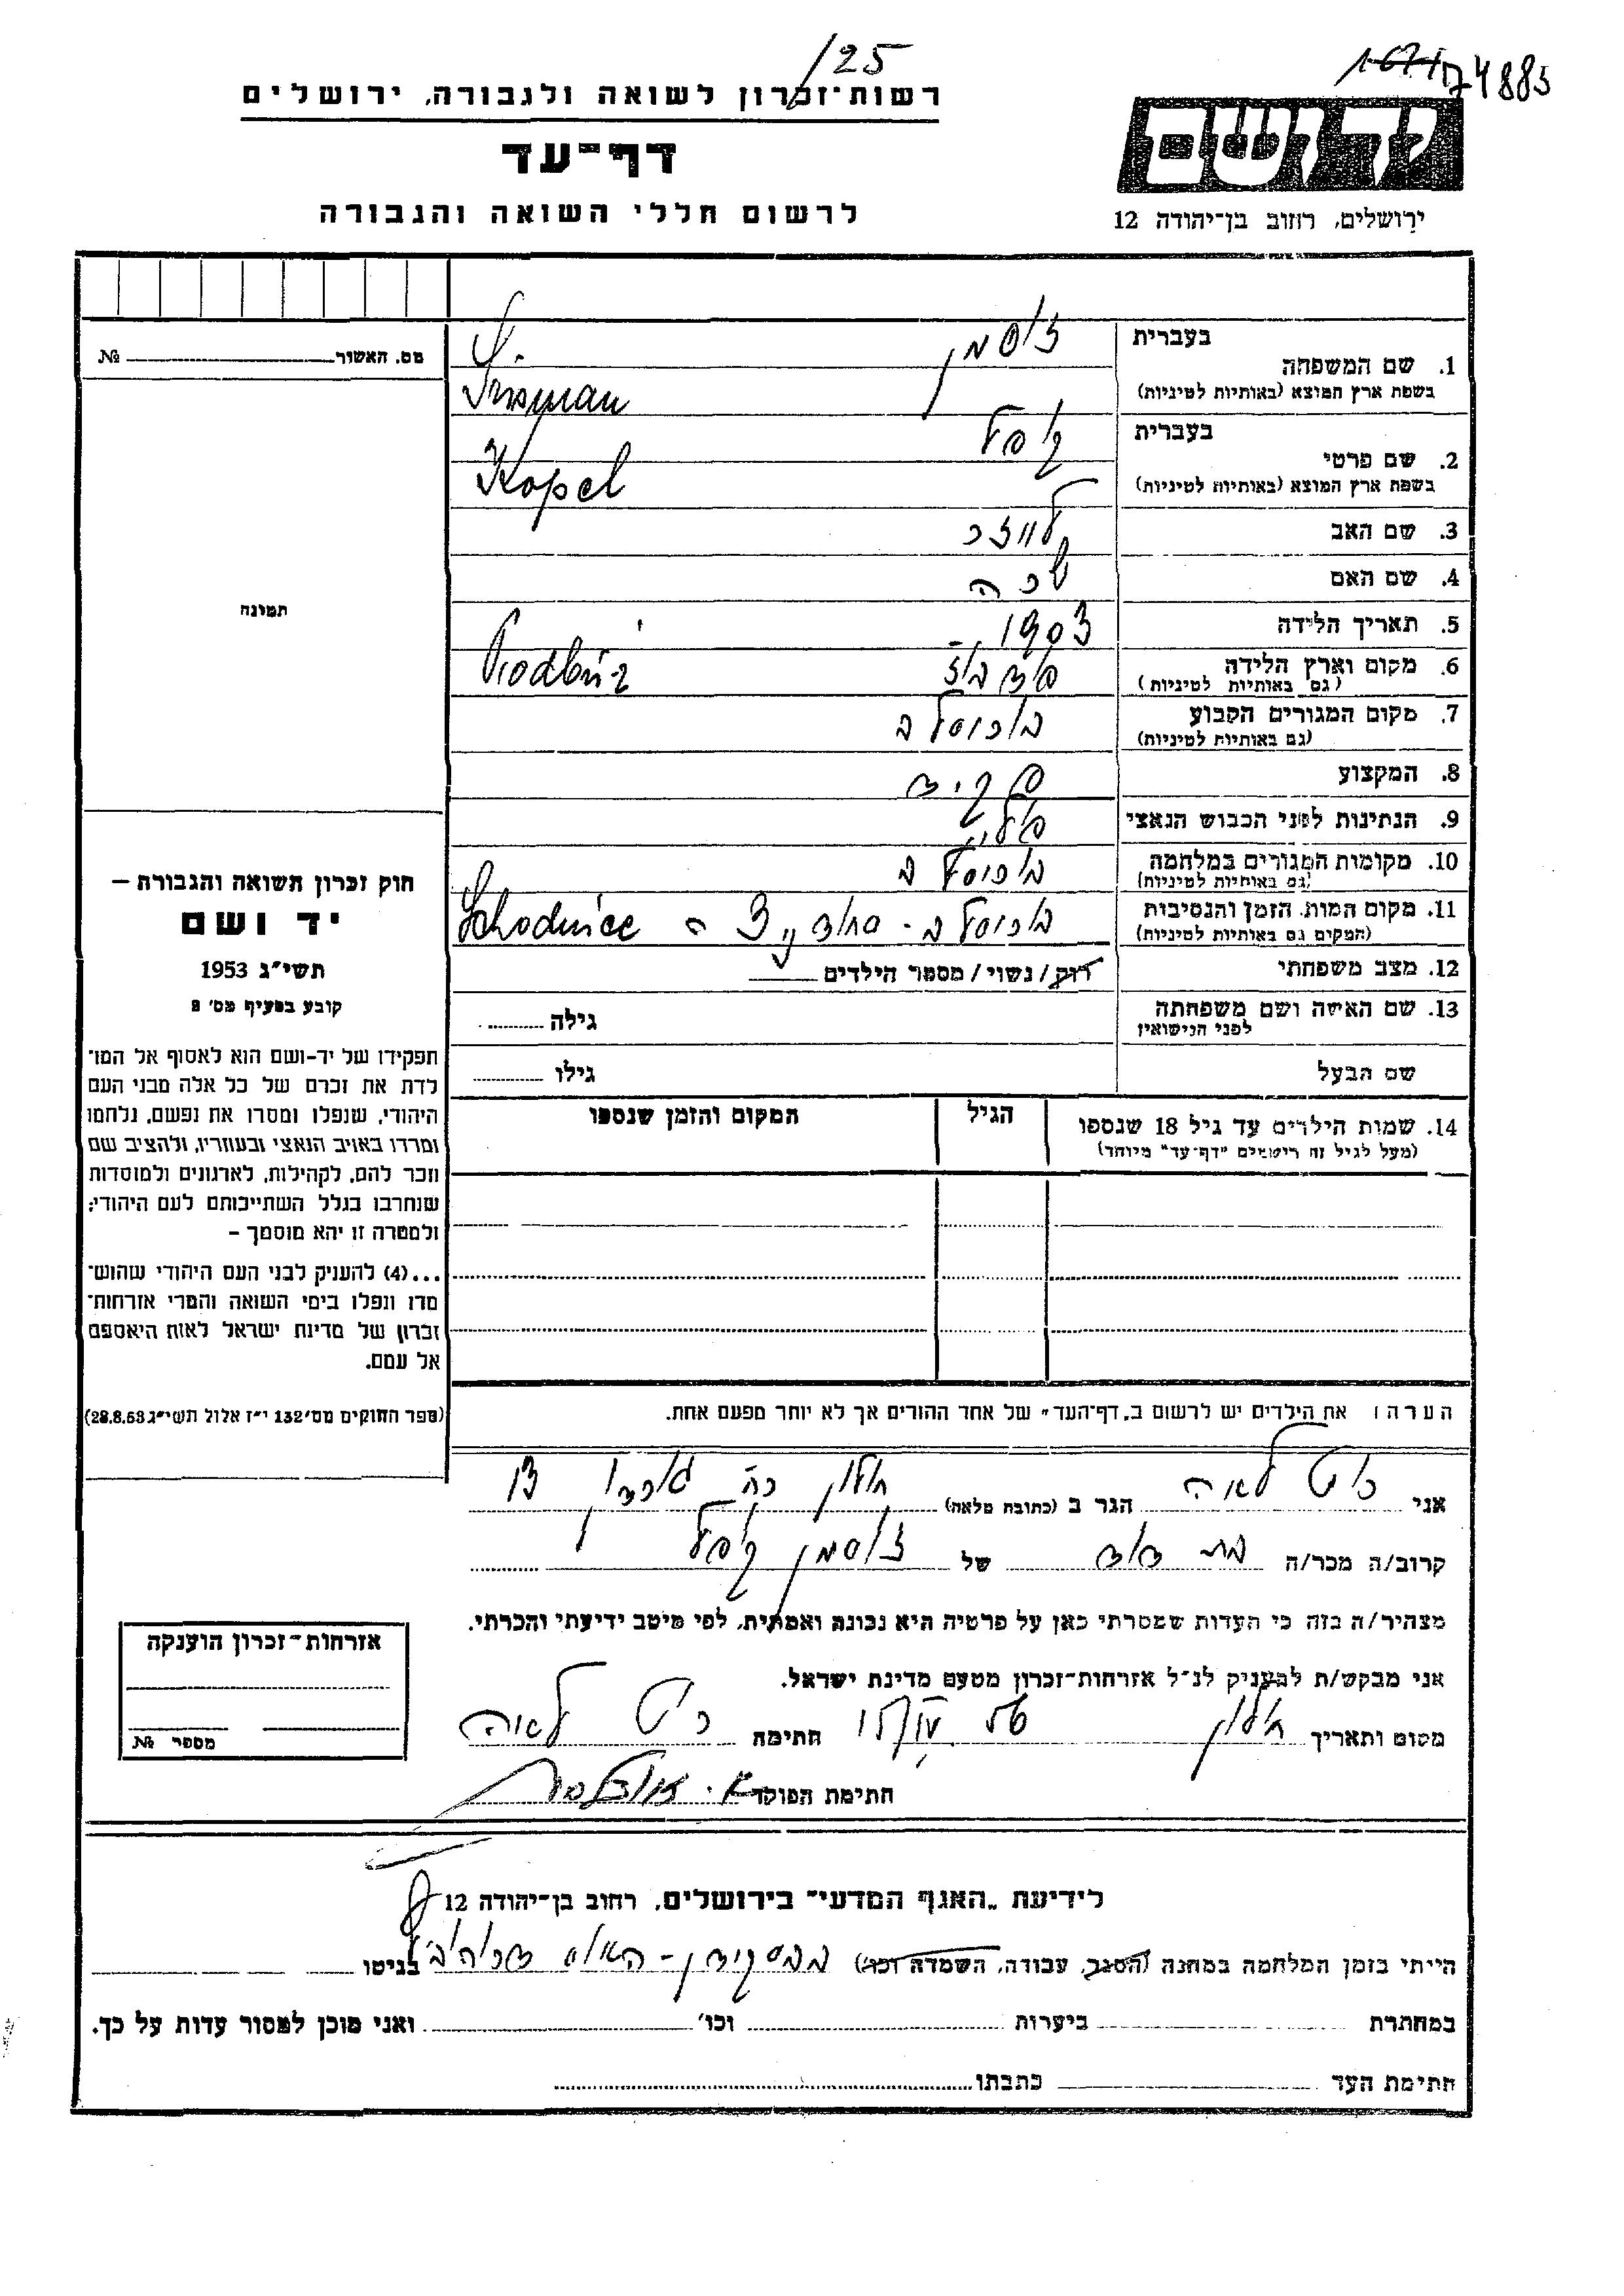 125
74885
רשות־זכרון לשואה ולגבורה, ירושלים
דף־עד
לרשום חללי השואה והגבורה
יד ושם
ירושלים, רחוב בן־יהודה 12
מס. האשור № 
בעברית
1. שם המשפחה זוסמן
בשפת ארץ המוצא (באותיות לטיניות)
בעברית
2. שם פרטי קופל
בשפת ארץ המוצא (באותיות לטיניות) Kopel
3. שם האב
4. שם האם
5. תאריך הלידה 1903
6. מקום וארץ הלידה
(גם באותיות לטיניות)
7. מקום המגורים הקבוע בוריסלב
(גם באותיות לטיניות)
8. המקצוע פקיד
9. הנתינות לפני הכבוש הנאצי פולני
10. מקומות המגורים במלחמה בוריסלב
(גם באותיות לטיניות)
11. מקום המות, הזמן והנסיבות בוריסלב Schodnica
(המקום גם באותיות לטיניות)
12. מצב משפחתי רוק / נשוי / מספר הילדים
13. שם האישה ושם משפחתה גילה
לפני הנישואין
שם הבעל גילו
14. שמות הילדים עד גיל 18 שנספו הגיל המקום והזמן שנספו
(מעל לגיל זה רישמים "דף־עד" מיוחד)
תמונה
חוק זכרון השואה והגבורה –
יד ושם
תשי"ג 1953
קובע בסעיף מס' 2
תפקידו של יד-ושם הוא לאסוף אל המו־
לדת את זכרם של כל אלה מבני העם
היהודי, שנפלו ומסרו את נפשם, נלחמו
ומרדו באויב הנאצי ובעוזריו, ולהציב שם
וזכר להם, לקהילות, לארגונים ולמוסדות
שנחרבו בגלל השתייכותם לעם היהודי;
ולמטרה זו יהא מוסמך –
...(4) להעניק לבני העם היהודי שהוש־
מדו ונפלו בימי השואה והמרי אזרחות־
זכרון של מדינת ישראל לאות היאספם
אל עמם.
(ספר החוקים מס' 132 י"ז אלול תשי"ג 28.8.53)
הערה: את הילדים יש לרשום ב„דף־העד" של אחד ההורים אך לא יותר מפעם אחת.
אני לאה הגר ב (כתובת מלאה) חולון
קרוב/ה מכר/ה בת דוד של זוסמן קופל
מצהיר/ה בזה כי העדות שמסרתי כאן על פרטיה היא נכונה ואמתית, לפי מיטב ידיעתי והכרתי.
אני מבקש/ת להעניק לנ"ל אזרחות־זכרון מטעם מדינת ישראל.
מקום ותאריך חולון חתימה לאה
חתימת הפוקד
אזרחות־זכרון הוענקה
מספר №
לידיעת „האגף המדעי" בירושלים, רחוב בן־יהודה 12
הייתי בזמן המלחמה במחנה (הסגר, עבודה, השמדה וכו') בגיטו
במחתרת ביערות וכו' ואני מוכן למסור עדות על כך.
חתימת העד כתבתו